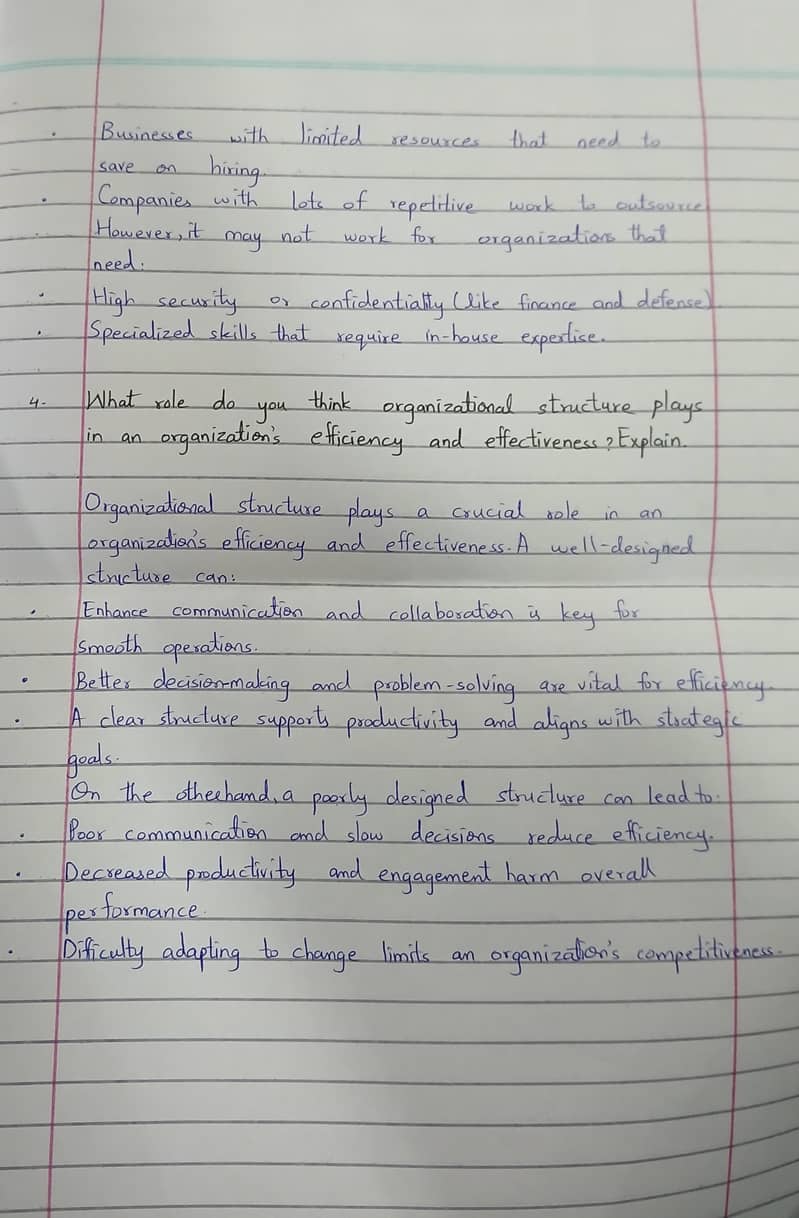 · Businesses with limited resources that need to
save on hiring.
· Companies with lots of repetitive work to outsource
However, it may not work for organizations that
need:
· High security or confidentiality (like finance and defense)
· Specialized skills that require in-house expertise.
4- What role do you think organizational structure plays
in an organization's efficiency and effectiveness? Explain.
Organizational structure plays a crucial role in an
organization's efficiency and effectiveness. A well-designed
structure can:
· Enhance communication and collaboration is key for
smooth operations.
· Better decision-making and problem-solving are vital for efficiency.
· A clear structure supports productivity and aligns with strategic
goals.
On the otherhand, a poorly designed structure can lead to:
· Poor communication and slow decisions reduce efficiency.
· Decreased productivity and engagement harm overall
performance.
· Difficulty adapting to change limits an organization's competitiveness.